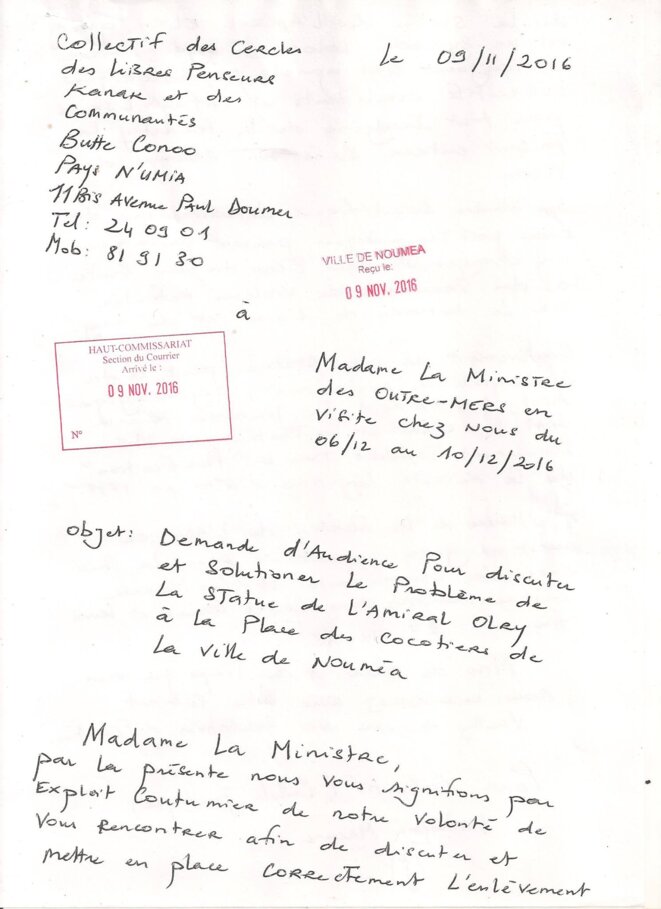 Collectif des Cercles
des Libres Penseurs
Kanak et des
Communautés
Butte Conoo
Pays N'umia
11 Bis Avenue Paul Doumer
Tel: 24 09 01
Mob: 81 91 30
Le 09/11/2016
VILLE DE NOUMEA
Reçu le:
09 NOV. 2016
à
HAUT-COMMISSARIAT
Section du Courrier
Arrivé le :
09 NOV. 2016
N°
Madame La Ministre
des OUTRE-MERS en
Visite chez nous du
06/12 au 10/12/2016
Objet: Demande d'Audience Pour discuter
et Solutioner Le Problème de
La Statue de L'Amiral OLRY
à la Place des Cocotiers de
La Ville de Nouméa
Madame La Ministre,
par La présente nous Vous signifions par
Exploit Coutumier de notre Volonté de
Vous Rencontrer afin de discuter et
mettre en place Correctement L'enlèvement